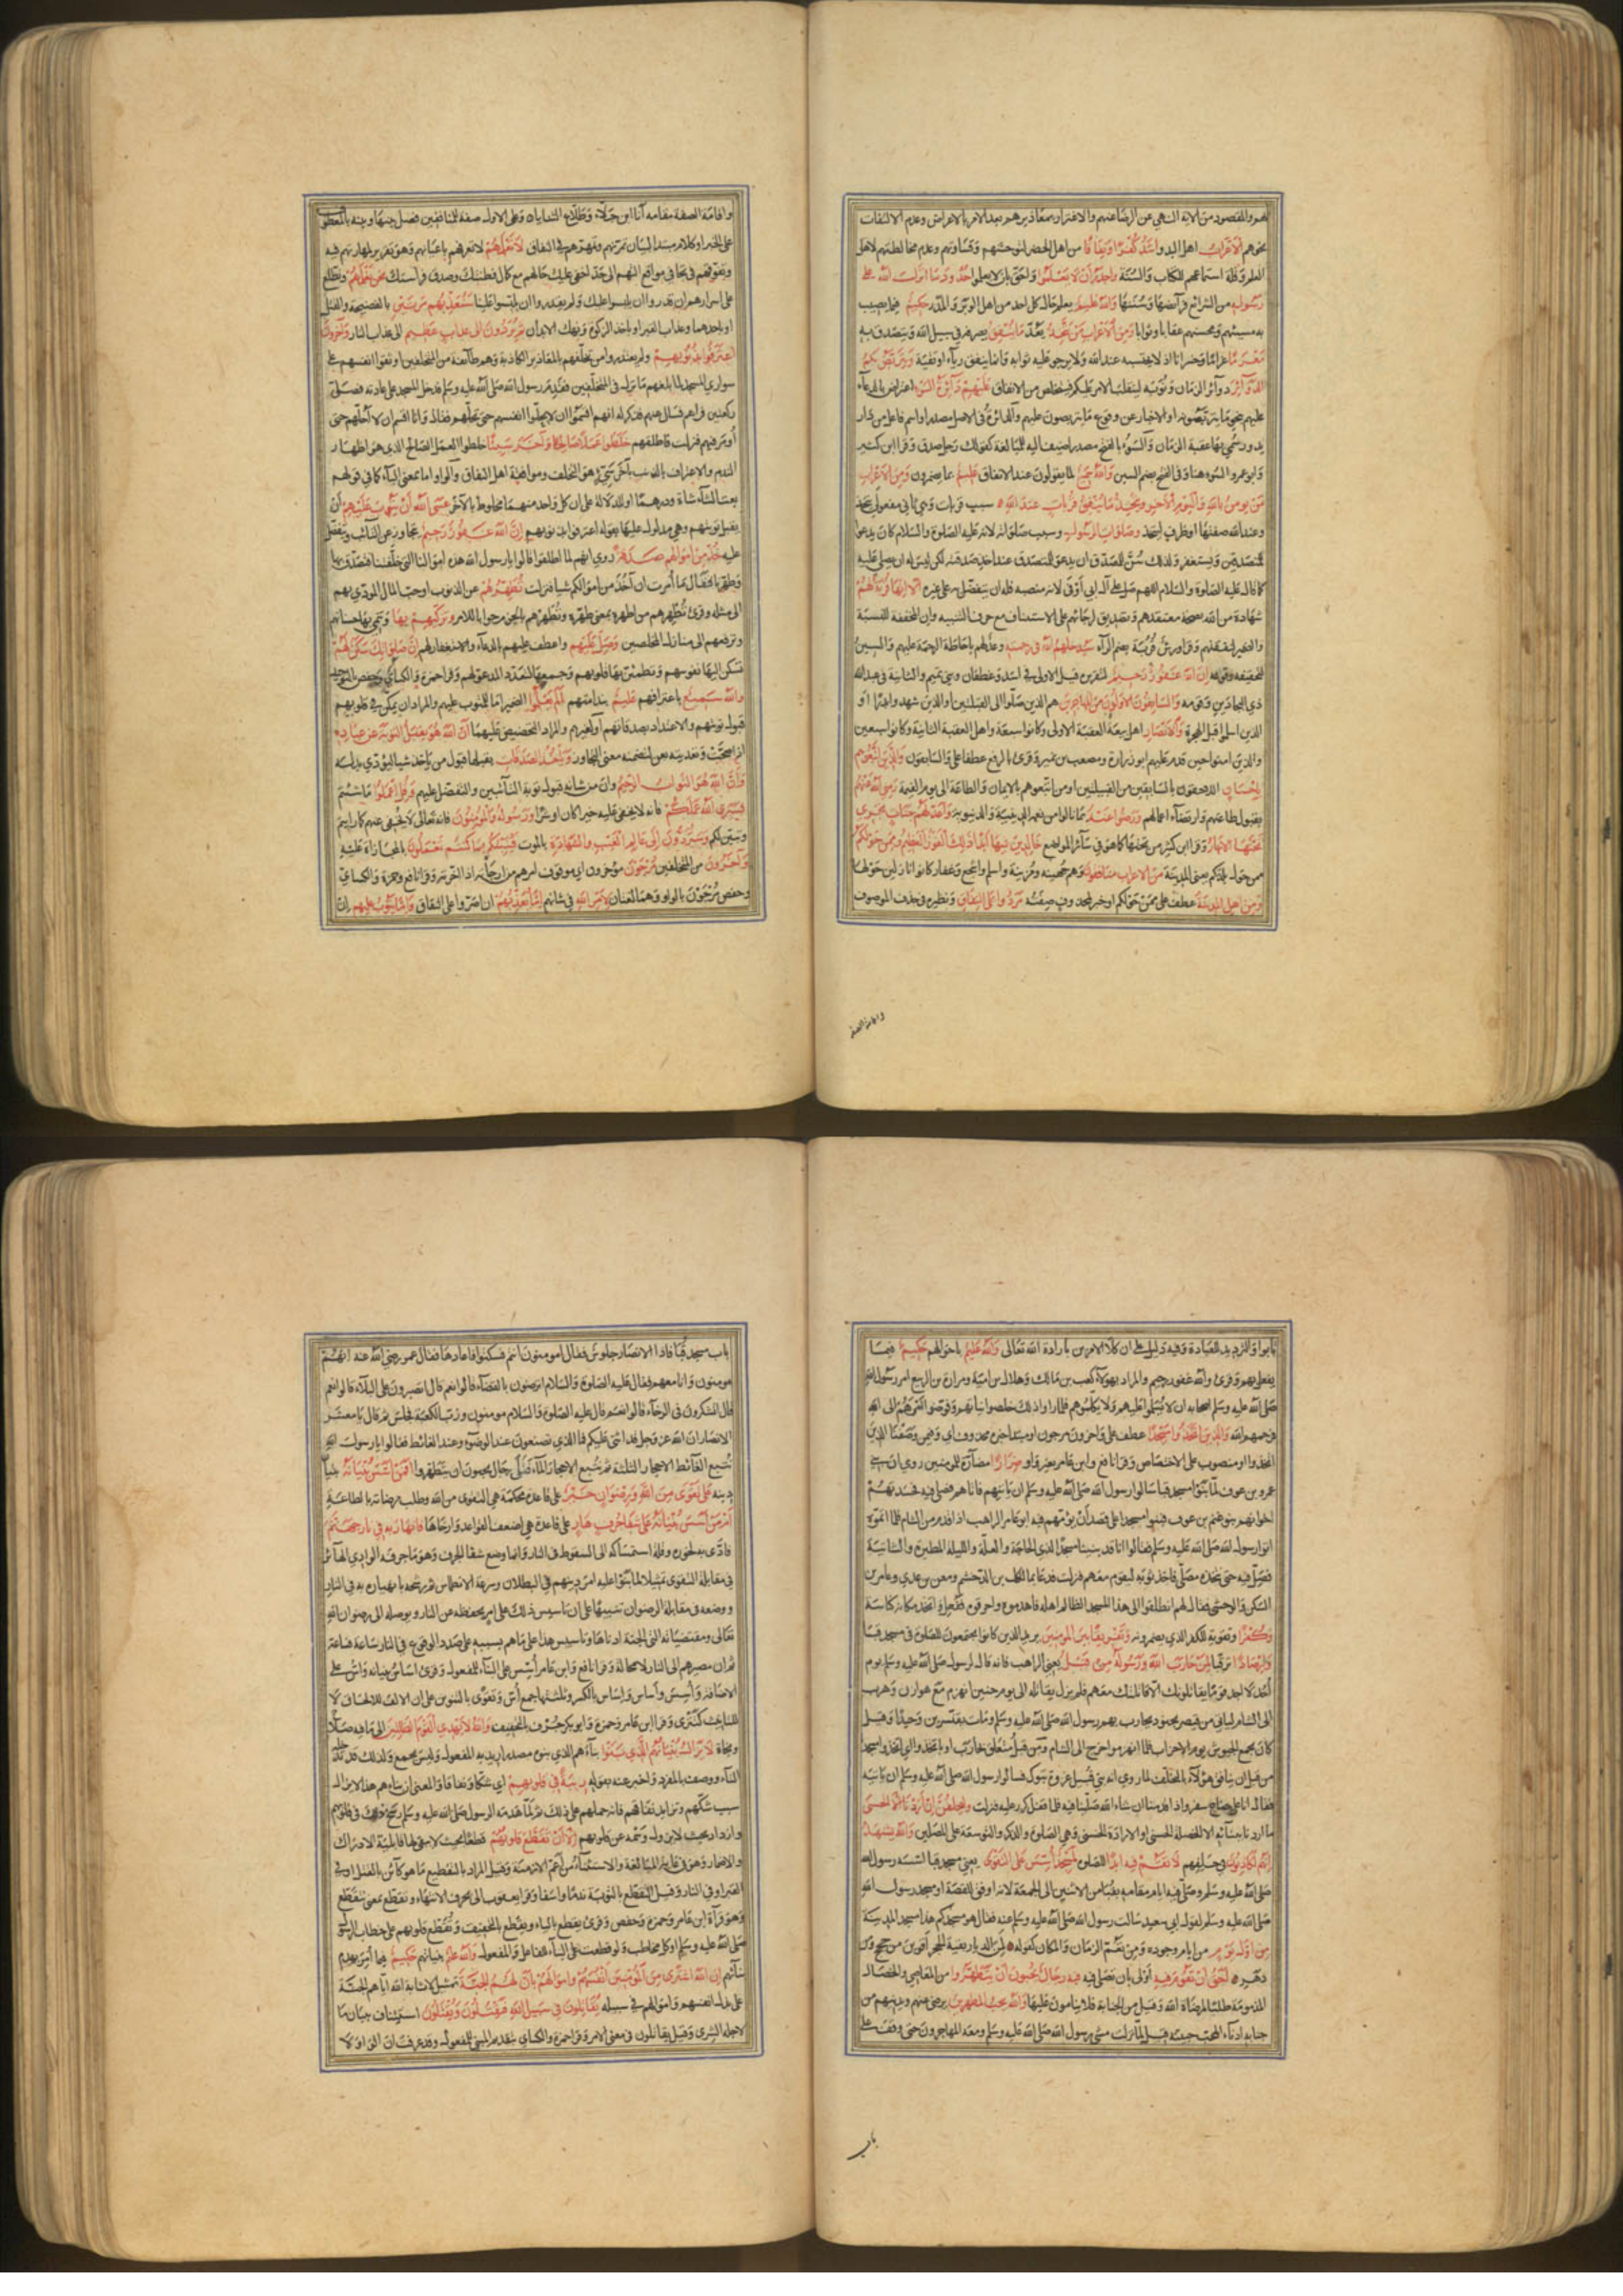 لهم والمقصود من الاية النهي عن الرضا عنهم والاغترار بمعاذيرهم بعد الامر بالاعراض وعدم الالتفات
نحوهم الاعراب اهل البدو اشد كفرا ونفاقا من اهل الحضر لتوحشهم وقساوتهم وعدم مخالطتهم لاهل
العلم وقلة استماعهم للكتاب والسنة واجدر ان لا يعلموا واحق بان لا يعلموا حدود ما انزل الله على
رسوله من الشرائع فرائضها وسننها والله عليم يعلم حال كل احد من اهل الوبر والمدر حكيم فيما يصيب
به مسيئهم ومحسنهم عقابا وثوابا ومن الاعراب من يتخذ يعد ما ينفق يصرفه في سبيل الله ويتصدق به
مغرما غرامة وخسرانا اذ لا يحتسبه عند الله ولا يرجو عليه ثوابا وانما ينفق رياء او تقية ويتربص بكم
الدوائر دوائر الزمان ونوبه لينقلب الامر عليكم فيتخلص من الانفاق عليهم دائرة السوء اعتراض بالدعاء
عليهم بنحو ما يتربصونه او الاخبار عن وقوع ما يتربصون عليهم والدائرة في الاصل مصدر او اسم فاعل من دار
يدور سمي بها عقبة الزمان والسوء بالفتح مصدر اضيف اليه للمبالغة كقولك رجل صدق وقرا ابن كثير
وابو عمرو السوء هنا وفي الفتح بضم السين والله سميع لما يقولون عند الانفاق عليم بما يضمرون ومن الاعراب
من يومن بالله واليوم الاخر ويتخذ ما ينفق قربات عند الله سبب قربات وهي ثاني مفعولي يتخذ
وعند الله صفتها او ظرف ليتخذ وصلوات الرسول وسبب صلواته لانه عليه الصلوة والسلام كان يدعو
للمتصدقين ويستغفر ولذلك سن للمصدق ان يدعو للمتصدق عند اخذ صدقته لكن ليس له ان يصلي عليه
كما قال عليه الصلوة والسلام اللهم صل على آل ابي اوفى لانه منصبه فله ان يتفضل به على غيره الا انها قربة لهم
شهادة من الله بصحة معتقدهم وتصديق لرجائهم على الاستئناف مع حرف التنبيه وان المحققة للنسبة
والضمير لنفقتهم وقرا ورش قربة بضم الراء سيدخلهم الله في رحمته وعد لهم باحاطة الرحمة عليهم والسين
لتحقيقه وقوله ان الله غفور رحيم لتقريره قيل الاولى في اسد وغطفان وبني تميم والثانية في عبد الله
ذي البجادين وقومه والسابقون الاولون من المهاجرين هم الذين صلوا الى القبلتين او الذين شهدوا بدرا او
الذين اسلموا قبل الهجرة والانصار اهل بيعة العقبة الاولى وكانوا سبعة واهل العقبة الثانية وكانوا سبعين
والذين امنوا حين قدم عليهم ابو زرارة ومصعب بن عمير وقرئ بالرفع عطفا على والسابقون والذين اتبعوهم
باحسان اللاحقون بالسابقين من القبيلتين او من اتبعوهم بالايمان والطاعة الى يوم القيمة رضي الله عنهم
بقبول طاعتهم وارتضاء اعمالهم ورضوا عنه بما نالوا من نعمه الدينية والدنيوية واعد لهم جنات تجري
تحتها الانهار وقرا ابن كثير من تحتها كما هو في سائر المواضع خالدين فيها ابدا ذلك الفوز العظيم وممن حولكم
ممن حول بلدتكم يعني المدينة من الاعراب منافقون وهم جهينة ومزينة واسلم واشجع وغفار كانوا نازلين حولها
ومن اهل المدينة عطف على ممن حولكم او خبر لمحذوف صفته مردوا على النفاق ونظيره في حذف الموصوف
واقامة الصفة
واقامة الصفة مقامه انا ابن جلا وطلاع الثنايا وعلى الاول صفة للمنافقين فصل بينها وبينه بالمعطوف
على الخبر او كلام مبتدا لبيان تمرنهم ومهرتهم في النفاق لا تعلمهم لا تعرفهم باعيانهم وهو تقرير لمهارتهم فيه
وتنوقهم في تحامي مواقع التهم الى حد اخفى عليك حالهم مع كمال فطنتك وصدق فراستك نحن نعلمهم ونطلع
على اسرارهم ان قدروا ان يلبسوا عليك ولم يقدروا ان يلبسوا علينا سنعذبهم مرتين بالفضيحة والقتل
او باحدهما وعذاب القبر او باخذ الزكوة ونهك الابدان ثم يردون الى عذاب عظيم الى عذاب النار واخرون
اعترفوا بذنوبهم ولم يعتذروا من تخلفهم بالمعاذير الكاذبة وهم طائفة من المتخلفين اوثقوا انفسهم على
سواري المسجد لما بلغهم ما نزل في المتخلفين فقدم رسول الله صلى الله عليه وسلم فدخل المسجد على عادته فصلى
ركعتين فراهم فسال عنهم فذكر له انهم اقسموا ان لا يحلوا انفسهم حتى تحلهم فقال وانا اقسم ان لا احلهم حتى
أومر فيهم فنزلت فاطلقهم خلطوا عملا صالحا واخر سيئا خلطوا العمل الصالح الذي هو اظهار
الندم والاعتراف بالذنب باخر سيئ هو التخلف وموافقة اهل النفاق والواو اما بمعنى الباء كما في قولهم
بعت الشاء شاة ودرهما او للدلالة على ان كل واحد منهما مخلوط بالاخر عسى الله ان يتوب عليهم ان
يقبل توبتهم وهي مدلول عليها بقوله اعترفوا بذنوبهم ان الله غفور رحيم يتجاوز عن التائب ويتفضل
عليه خذ من اموالهم صدقة روي انهم لما اطلقوا قالوا يا رسول الله هذه اموالنا التي خلفتنا فتصدق بها
وطهرنا فقال ما أمرت ان آخذ من اموالكم شيا فنزلت تطهرهم عن الذنوب او حب المال المودي بهم
الى مثله وقرئ تطهرهم من اطهره بمعنى طهره وتطهرهم بالجزم جوابا للامر وتزكيهم بها وتنمي بها حسناتهم
وترفعهم الى منازل المخلصين وصل عليهم واعطف عليهم بالدعاء والاستغفار لهم ان صلوتك سكن لهم
تسكن اليها نفوسهم وتطمئن بها قلوبهم وجمعها لتعدد المدعو لهم وقرا حمزة والكسائي وحفص بالتوحيد
والله سميع باعترافهم عليم بندامتهم الم يعلموا الضمير اما للمتوب عليهم والمراد ان يمكن في قلوبهم
قبول توبتهم والاعتداد بصدقاتهم او لغيرهم والمراد التحضيض عليهما ان الله هو يقبل التوبة عن عباده
اذا صحت وتعديته بعن لتضمنه معنى التجاوز وياخذ الصدقات يقبلها قبول من ياخذ شيا ليؤدي بدله
وان الله هو التواب الرحيم وان من شانه قبول توبة التائبين والتفضل عليهم وقل اعملوا ما شئتم
فسيرى الله عملكم فانه لا يخفى عليه خيرا كان او شرا ورسوله والمؤمنون فانه تعالى لا يخفي عنهم كما رايتم
وتبين لكم وستردون الى عالم الغيب والشهادة بالموت فينبئكم بما كنتم تعملون بالمجازاة عليه
واخرون من المتخلفين مرجون مؤخرون اي موقوف امرهم من ارجأته اذا اخرته وقرا نافع وحمزة والكسائي
وحفص مرجون بالواو وهما لغتان لامر الله في شانهم اما يعذبهم ان اصروا على النفاق واما يتوب عليهم ان
تابوا والترديد للعباد وفيه دليل على ان كلا الامرين بارادة الله تعالى والله عليم باحوالهم حكيم فيما
يفعل بهم وقرئ والله غفور رحيم والمراد بهؤلاء كعب بن مالك وهلال بن امية ومرارة بن الربيع امر رسول الله
صلى الله عليه وسلم اصحابه ان لا يسلموا عليهم ولا يكلموهم فلما راوا ذلك اخلصوا نياتهم وفوضوا امرهم الى الله
فرحمهم الله والذين اتخذوا مسجدا عطف على واخرون مرجون او مبتدا خبره محذوف اي وفيمن وصفنا الذين
اتخذوا او منصوب على الاختصاص وقرا نافع وابن عامر بغير واو ضرارا مضارة للمؤمنين روي ان بني
عمرو بن عوف لما بنوا مسجد قبا سالوا رسول الله صلى الله عليه وسلم ان ياتيهم فاتاهم فصلى فيه فحسدتهم
اخوانهم بنو غنم بن عوف فبنوا مسجدا على قصد ان يؤمهم فيه ابو عامر الراهب اذا قدم من الشام فلما اتموه
اتوا رسول الله صلى الله عليه وسلم فقالوا انا قد بنينا مسجدا لذي الحاجة والعلة والليلة المطيرة والشاتية
فصل فيه حتى نتخذه مصلى فاخذ ثوبه ليقوم معهم فنزلت فدعا بمالك بن الدخشم ومعن بن عدي وعامر بن
السكن والوحشي فقال لهم انطلقوا الى هذا المسجد الظالم اهله فاهدموه واحرقوه ففعل واتخذ مكانه كناسة
وكفرا وتقوية للكفر الذي يضمرونه وتفريقا بين المومنين يريد الذين كانوا يجتمعون للصلوة في مسجد قبا
وارصادا ترقبا لمن حارب الله ورسوله من قبل يعني الراهب فانه قال لرسول صلى الله عليه وسلم يوم
أحد لا اجد قوما يقاتلونك الا قاتلتك معهم فلم يزل يقاتله الى يوم حنين انهزم مع هوازن وهرب
الى الشام لياتي من قيصر بجنود يحارب بهم رسول الله صلى الله عليه وسلم ومات بقنسرين وحيدا وقيل
كان يجمع الجيوش يوم الاحزاب فلما انهزموا خرج الى الشام ومن قبل متعلق بحارب او باتخذ والذي اتخذوا مسجدا
من قبل ان ينافق هؤلاء بالتخلف لما روي انه بني قبيل غزوة تبوك فسالوا رسول الله صلى الله عليه وسلم ان ياتيه
فقال انا على جناح سفر واذا قدمنا ان شاء الله صلينا فيه فلما قفل كرر عليه فنزلت وليحلفن ان اردنا الا الحسنى
ما اردنا ببنائه الا الخصلة الحسنى او الارادة الحسنى وهي الصلوة والذكر والتوسعة على المصلين والله يشهد
انهم لكاذبون في حلفهم لا تقم فيه ابدا للصلوة لمسجد اسس على التقوى يعني مسجد قبا اسسه رسول الله
صلى الله عليه وسلم وصلى فيه ايام مقامه بقبا من الاثنين الى الجمعة لانه اوفق للقصة او مسجد رسول الله
صلى الله عليه وسلم لقول ابي سعيد سالت رسول الله صلى الله عليه وسلم عنه فقال هو مسجدكم هذا مسجد المدينة
من اول يوم من ايام وجوده ومن تعم الزمان والمكان كقوله لمن الديار بقنة الحجر اقوين من حجج ومن
دهر احق ان تقوم فيه اولى بان تصلي فيه فيه رجال يحبون ان يتطهروا من المعاصي والخصال
المذمومة طلبا لمرضاة الله وقيل من الجنابة فلا ينامون عليها والله يحب المطهرين يرضى عنهم ويدنيهم من
جنابه ادناء المحب حبيبه قيل لما نزلت مشى رسول الله صلى الله عليه وسلم ومعه المهاجرون حتى وقف على
باب
باب مسجد قبا فاذا الانصار جلوس فقال امومنون انتم فسكتوا فاعادها فقال عمر رضي الله عنه انهم
مومنون وانا معهم فقال عليه الصلوة والسلام اترضون بالقضاء قالوا نعم قال اتصبرون على البلاء قالوا نعم
قال اتشكرون في الرخاء قالوا نعم قال عليه الصلوة والسلام مومنون ورب الكعبة فجلس ثم قال يا معشر
الانصار ان الله عز وجل قد اثنى عليكم فما الذي تصنعون عند الوضوء وعند الغائط فقالوا يا رسول الله
نتبع الغائط الاحجار الثلثة ثم نتبع الاحجار الماء فتلى رجال يحبون ان يتطهروا افمن اسس بنيانه بنيان
دينه على تقوى من الله ورضوان خير على قاعدة محكمة هي التقوى من الله وطلب مرضاته بالطاعة
ام من اسس بنيانه على شفا جرف هار على قاعدة هي اضعف القواعد وارخاها فانهار به في نار جهنم
فادى به لخوره وقلة استمساكه الى السقوط في النار وانما وضع شفا الجرف وهو ما جرفه الوادي الهائر
في مقابلة التقوى تمثيلا لما بنوا عليه امر دينهم في البطلان وسرعة الانطماس ثم رشحه بانهياره به في النار
ووضعه في مقابلة الرضوان تنبيها على ان تاسيس ذلك على امر يحفظه عن النار ويوصله الى رضوان الله
تعالى ومقتضياته التي الجنة ادناها وتاسيس هذا على ما هم بسببه على صدد الوقوع في النار ساعة فساعة
ثم ان مصيرهم الى النار لا محالة وقرا نافع وابن عامر اسس على البناء للمفعول وقرئ اساس بنيانه واس على
الاضافة واسس واساس واساس بالكسر وثلثتها جمع اس وتقوى بالتنوين على ان الالف للالحاق لا
للتانيث كتترى وقرا ابن عامر وحمزة وابو بكر جرف بالتخفيف والله لا يهدي القوم الظالمين الى ما فيه صلاح
ونجاة لا يزال بنيانهم الذي بنوا بناءهم الذي بنوه مصدر اريد به المفعول وليس بجمع ولذلك قد تدخله
التاء ووصف بالمفرد واخبر عنه بقوله ريبة في قلوبهم اي شكا ونفاقا والمعنى ان بناءهم هذا لا يزال
سبب شكهم وتزايد نفاقهم فانه حملهم على ذلك ثم لما هدمه الرسول صلى الله عليه وسلم رسخ ذلك في قلوبهم
وازداد بحيث لا يزول وسمه عن قلوبهم الا ان تقطع قلوبهم قطعا بحيث لا يبقى لها قابلية الادراك
والاضمار وهو في غاية المبالغة والاستثناء من اعم الازمنة وقيل المراد بالتقطيع ما هو كائن بالقتل او في
القبر او في النار وقيل التقطع بالتوبة ندما واسفا وقرا يعقوب الى بحرف الانتهاء وتقطع بمعنى تتقطع
وهو قراة ابن عامر وحمزة وحفص وقرئ يقطع بالياء ويقطع بالتخفيف وتقطع قلوبهم على خطاب الرسول
صلى الله عليه وسلم او كل مخاطب ولو قطعت على البناء للفاعل والمفعول والله عليم بنياتهم حكيم فيما أمر بهدم
بنائهم ان الله اشترى من المؤمنين انفسهم واموالهم بان لهم الجنة تمثيل لاثابة الله اياهم الجنة
على بذل انفسهم واموالهم في سبيله يقاتلون في سبيل الله فيقتلون ويقتلون استيناف ببيان ما
لاجله الشرى وقيل يقاتلون في معنى الامر وقرا حمزة والكسائي بتقديم المبني للمفعول وقد عرفت ان الواو لا